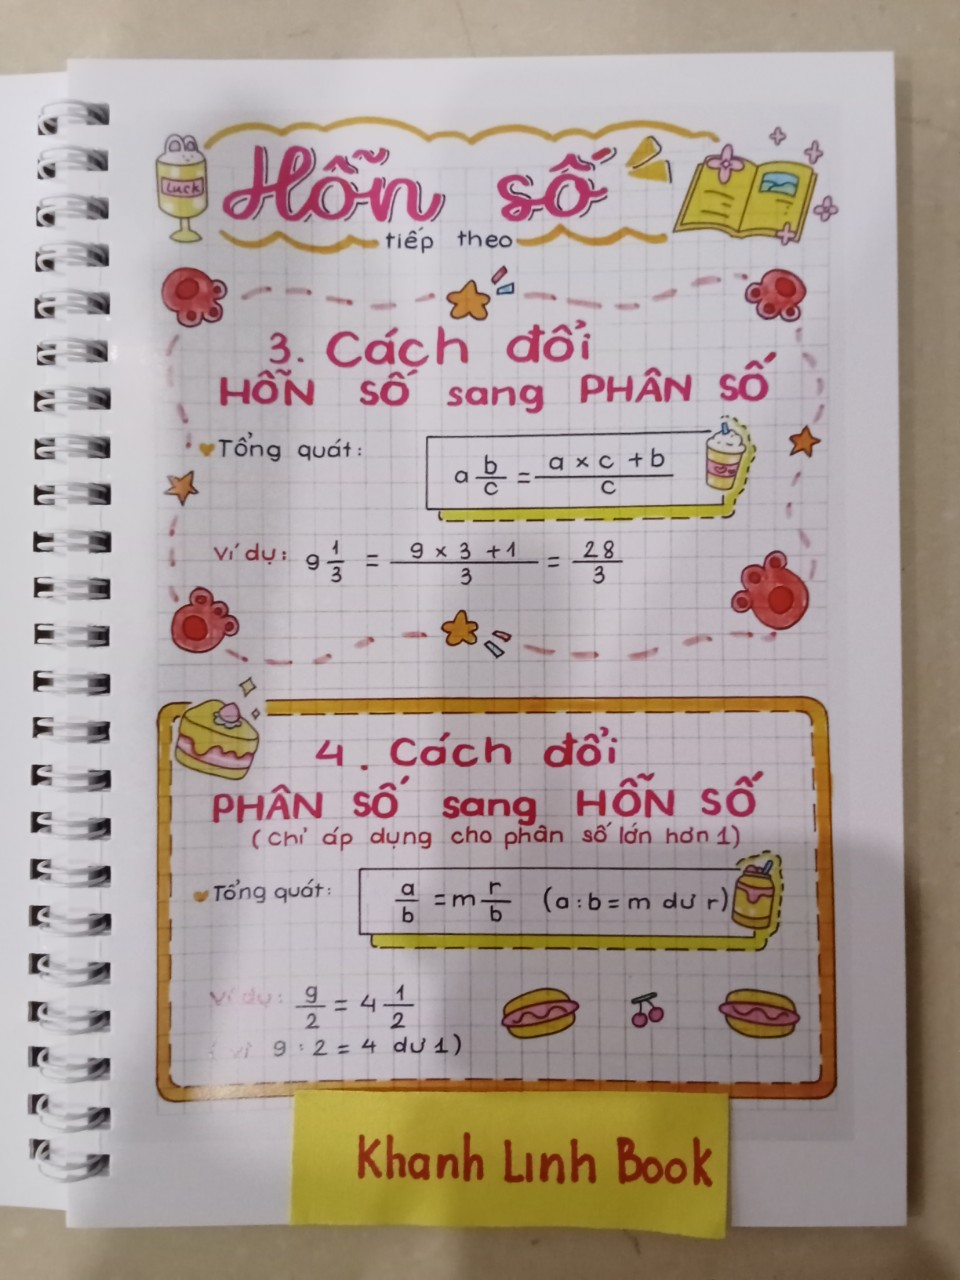 Luck
Hỗn số
tiếp theo
3. Cách đổi
HỖN SỐ sang PHÂN SỐ
Tổng quát:
a b/c = a × c + b / c
Ví dụ: 9 1/3 = 9 × 3 + 1 / 3 = 28/3
4. Cách đổi
PHÂN SỐ sang HỖN SỐ
(chỉ áp dụng cho phân số lớn hơn 1)
Tổng quát:
a/b = m r/b (a : b = m dư r)
Ví dụ: 9/2 = 4 1/2
(vì 9 : 2 = 4 dư 1)
Khanh Linh Book